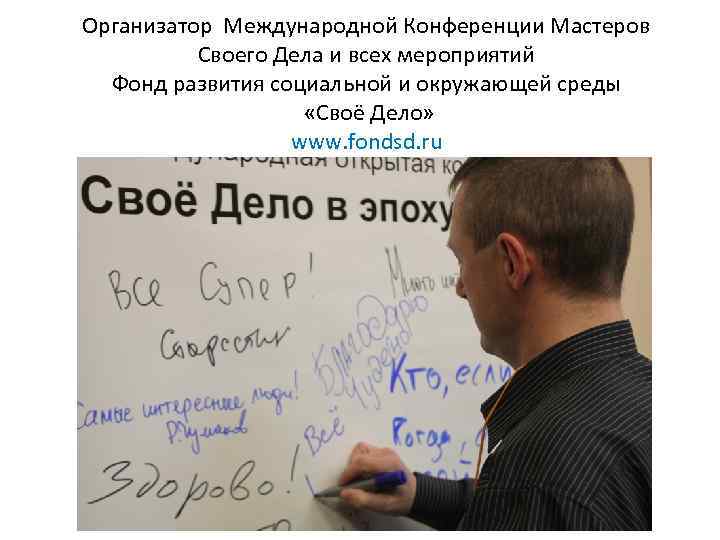 Организатор Международной Конференции Мастеров
Своего Дела и всех мероприятий
Фонд развития социальной и окружающей среды
«Своё Дело»
www.fondsd.ru
дународная открытая ко
Своё Дело в эпоху
Все Супер!
Много инт
Благодарю
Чудено
Кто, если
Самые интересные люди!
Р. Чумаков
Всё
Когда
Здорово!